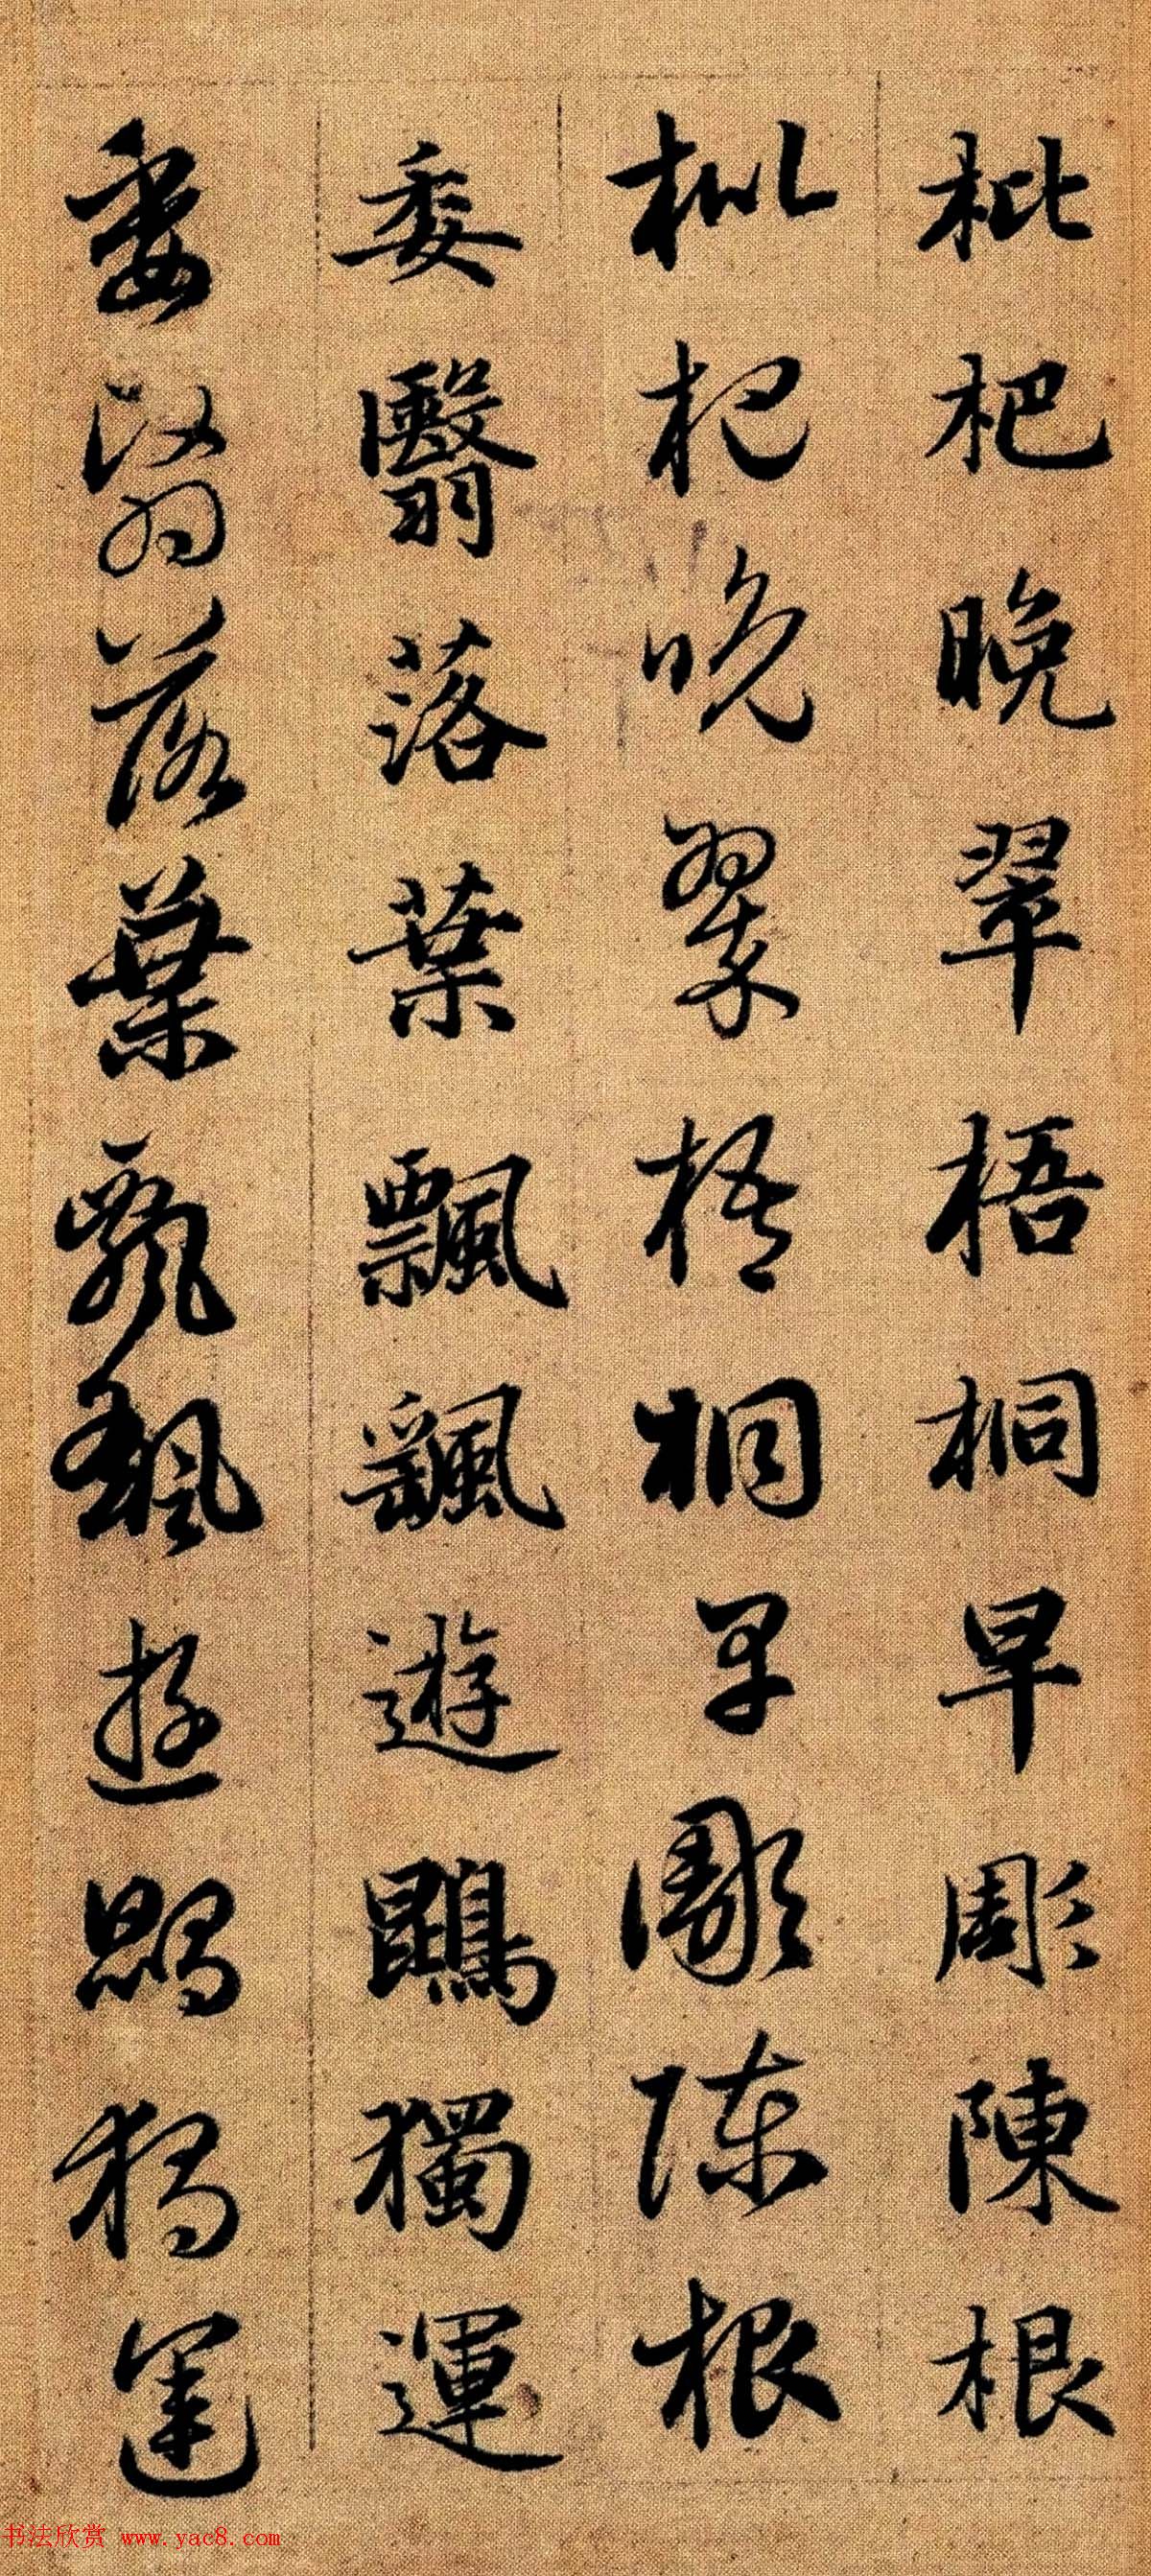 枇杷晚翠梧桐早彫陳根
枇杷晚翠梧桐早彫陈根
委翳落葉飄飖遊鵾獨運
委翳落葉飄飖遊鵾獨運
书法欣赏 www.yac8.com